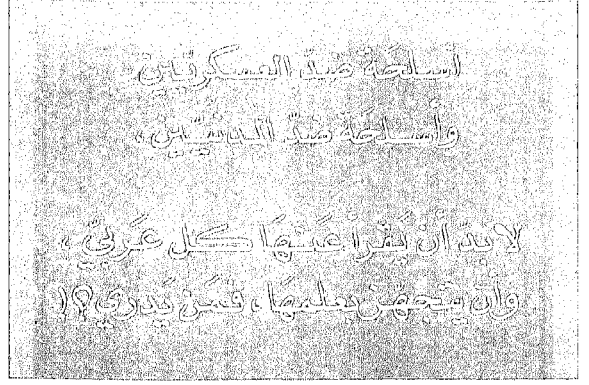 أسلحَة ضدّ العسكريّين
وأسلحَة ضدّ المدنيّين،
لا بدّ أن يَقرأ عَنهَا كل عَربيّ،
وأن يتجهّز بعلمهَا، فمَن يَدري؟!